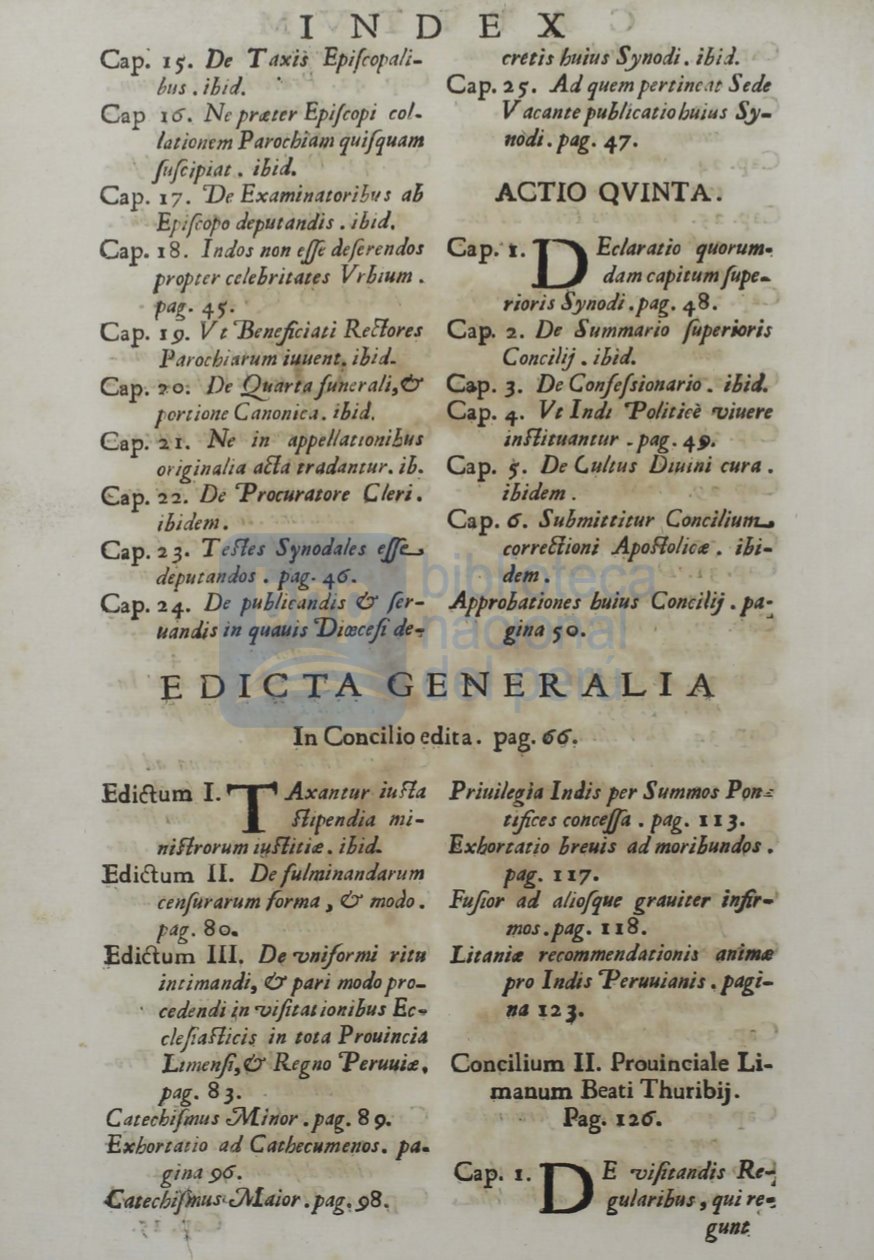 INDEX
Cap. 15. De Taxis Epiſcopali-
bus . ibid.
Cap 16. Ne præter Epiſcopi col-
lationem Parochiam quiſquam
ſuſcipiat . ibid.
Cap. 17. De Examinatoribus ab
Epiſcopo deputandis . ibid.
Cap. 18. Indos non eſſe deferendos
propter celebritates Vrbium .
pag. 45.
Cap. 19. Vt Beneficiati Rectores
Parochiarum iuuent. ibid.
Cap. 20. De Quarta funerali, &
portione Canonica. ibid.
Cap. 21. Ne in appellationibus
originalia acta tradantur. ib.
Cap. 22. De Procuratore Cleri .
ibidem .
Cap. 23. Teſtes Synodales eſſe
deputandos . pag. 46.
Cap. 24. De publicandis & ſer-
uandis in quauis Diœceſi de-
cretis huius Synodi . ibid.
Cap. 25. Ad quem pertineat Sede
Vacante publicatio huius Sy-
nodi . pag. 47.
ACTIO QVINTA.
Cap. 1. DEclaratio quorum-
dam capitum ſupe-
rioris Synodi . pag. 48.
Cap. 2. De Summario ſuperioris
Concilij . ibid.
Cap. 3. De Confeſsionario . ibid.
Cap. 4. Vt Indi Politicè viuere
inſtituantur . pag. 49.
Cap. 5. De Cultus Diuini cura .
ibidem .
Cap. 6. Submittitur Concilium
correctioni Apoſtolicæ . ibi-
dem .
Approbationes huius Concilij . pa-
gina 50.
biblioteca
nacional
del perú
EDICTA GENERALIA
In Concilio edita. pag. 66.
Edictum I. TAxantur iuſta
ſtipendia mi-
niſtrorum iuſtitiæ . ibid.
Edictum II. De fulminandarum
cenſurarum forma , & modo .
pag. 80.
Edictum III. De vniformi ritu
intimandi, & pari modo pro-
cedendi in viſitationibus Ec-
cleſiaſticis in tota Prouincia
Limenſi, & Regno Peruuiæ.
pag. 83.
Catechiſmus Minor . pag. 89.
Exhortatio ad Cathecumenos. pa-
gina 96.
Catechiſmus Maior . pag. 98.
Priuilegia Indis per Summos Pon-
tifices conceſſa . pag. 113.
Exhortatio breuis ad moribundos .
pag. 117.
Fuſior ad alioſque grauiter infir-
mos . pag. 118.
Litaniæ recommendationis animæ
pro Indis Peruuianis . pagi-
na 123.
Concilium II. Prouinciale Li-
manum Beati Thuribij.
Pag. 126.
Cap. 1. DE viſitandis Re-
gularibus , qui re-
gunt